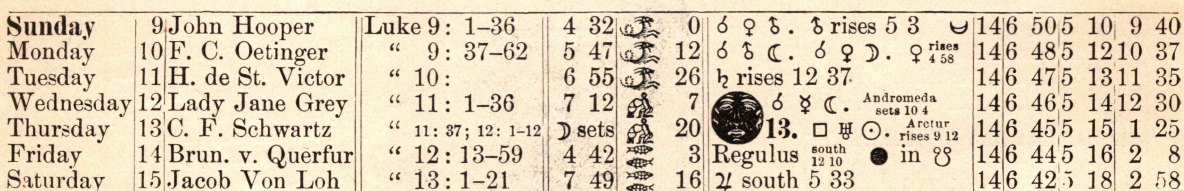 Sunday 9 John Hooper Luke 9: 1–36 4 32 0 ☌ ♀ . rises 5 3 14 6 50 5 10 9 40
Monday 10 F. C. Oetinger “ 9: 37–62 5 47 12 ☌ ☾. ☌ ♀ ☽. ♀ rises 4 58 14 6 48 5 12 10 37
Tuesday 11 H. de St. Victor “ 10: 6 55 26 ♄ rises 12 37 14 6 47 5 13 11 35
Wednesday 12 Lady Jane Grey “ 11: 1–36 7 12 7 ☌ ☿ ☾. Andromeda sets 10 4 14 6 46 5 14 12 30
Thursday 13 C. F. Schwartz “ 11: 37; 12: 1–12 ☽ sets 20 13. □ ♅ ☉. Arctur rises 9 12 14 6 45 5 15 1 25
Friday 14 Brun. v. Querfur “ 12: 13–59 4 42 3 Regulus south 12 10 ● in ☋ 14 6 44 5 16 2 8
Saturday 15 Jacob Von Loh “ 13: 1–21 7 49 16 ♃ south 5 33 14 6 42 5 18 2 58